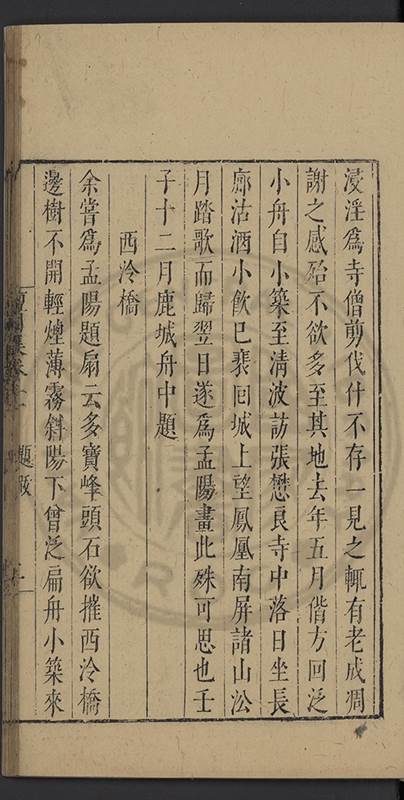 浸淫爲寺僧剪伐什不存一見之輒有老成凋
謝之感殆不欲多至其地去年五月偕方回泛
小舟自小築至清波訪張懋良寺中落日坐長
廊沽酒小飲已裴回城上望鳳凰南屏諸山㳂
月踏歌而歸翌日遂爲孟陽畫此殊可思也壬
子十二月鹿城舟中題
西泠橋
余嘗爲孟陽題扇云多寶峰頭石欲摧西泠橋
邊樹不開輕煙薄霧斜陽下曾泛扁舟小築來
題跋